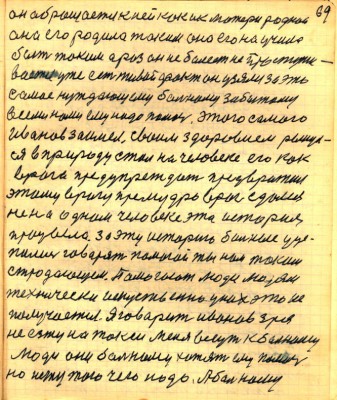 69
он обращается к ней как и к матери родной
она его родила таким она его научила
быть таким а раз он не болеет не простужи-
вается уже есть живой факт он взялся за это
самое нуждающему больному забытому
всеми ему надо помочь. Этого самого
Иванов занялся, своим здоровьем рынул-
ся в природу стал на человеке его как
врага предупреждать превратил
этому врагу премудро враг сдался
не на одном человеке эта история
прошла. За эту историю больные уце-
пились говорят помогай ты нам таким
страдающим. Помогают люди людям
технически искусственно у них это не
получается. Я говорит Иванов зря
не езжу на такси меня везут к больному
люди они больному хотят ему помочь
но нету того чего надо. А больному